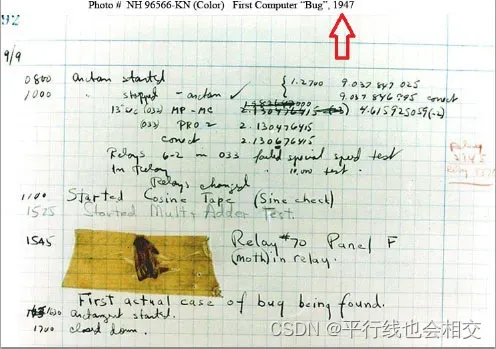 Photo # NH 96566-KN (Color) First Computer “Bug”, 1947
92
9/9
0800 antan started
1000 " stopped - antan ✓
{ 1.2700 9.037 847 025
9.037 846 995 conect
13"uc (032) MP - MC 2.130476415 4.615925059(-2)
(033) PRO 2 2.130476415
conect 2.130676415
Relays 6-2 in 033 failed special speed test
in Relay " 10,000 test.
Relay
2145
Relay
Relays changed
1100 Started Cosine Tape (Sine check)
1525 Started Mult + Adder Test.
1545 Relay #70 Panel F
(moth) in relay.
First actual case of bug being found.
antangent started.
1700 closed down.
CSDN @平行线也会相交